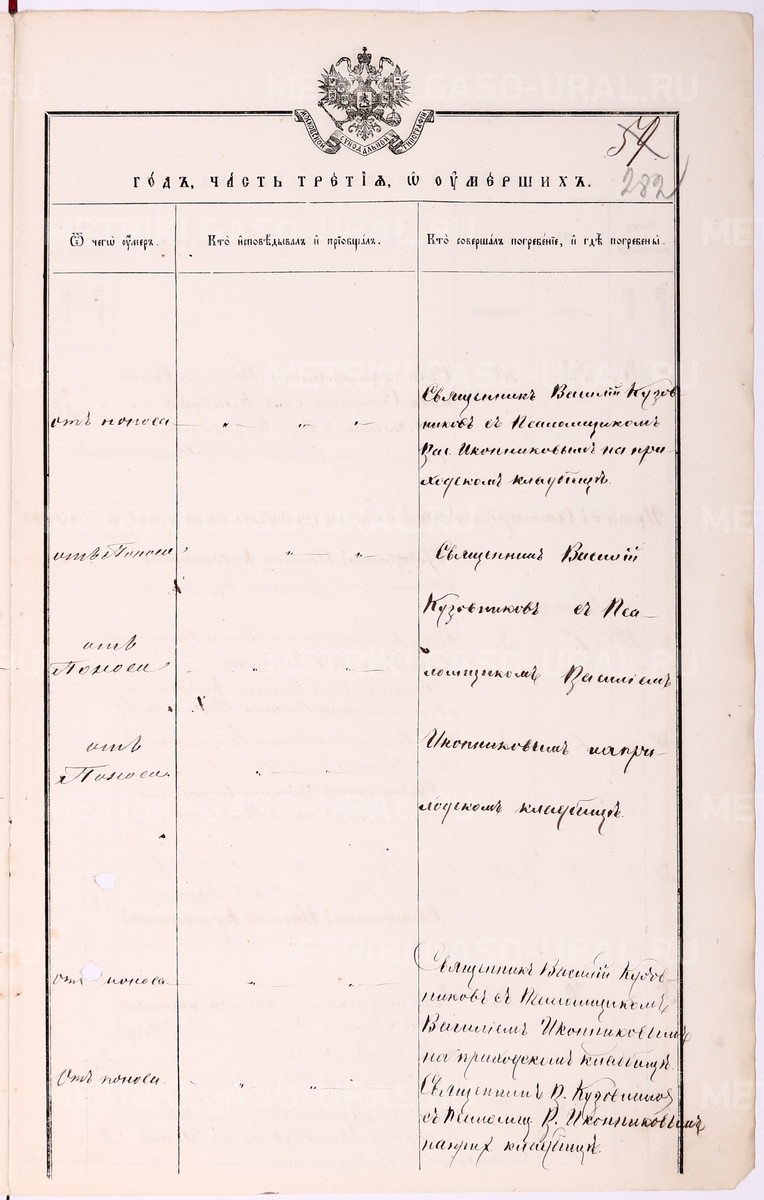 МОСКОВСКОЙ СѴНОДАЛЬНОЙ ТИПОГРАФІИ
57
282
ГО́ДЪ, ЧА́СТЬ ТРЕ́ТІѦ, Ѽ ОУ҆МЕ́РШИХЪ.
Ѿ чегѡ̀ оу҆́меръ.
Кто̀ и҆сповѣ́дывалъ и҆ прїѡбща́лъ.
Кто̀ соверша́лъ погребе́нїе, и҆ гдѣ̀ погребены̀.
отъ поноса
Священникъ Василій Кузов
никовъ съ Псаломщикомъ
Вас. Иконниковымъ на при-
ходскомъ кладбищѣ.
отъ Поноса
Священникъ Василій
Кузовниковъ съ Пса-
ломщикомъ Василіемъ
отъ
Поноса
Иконниковымъ на при-
ходскомъ кладбищѣ.
отъ
Поноса.
отъ поноса
Священникъ Василій Кузов-
никовъ съ Псаломщикомъ
Василіемъ Иконниковымъ
на приходскомъ кладбищѣ.
Отъ поноса.
Священникъ В. Кузовников
съ Псаломщ. В. Иконниковымъ
на прих. кладбищѣ.
METRIKI.GASO-URAL.RU